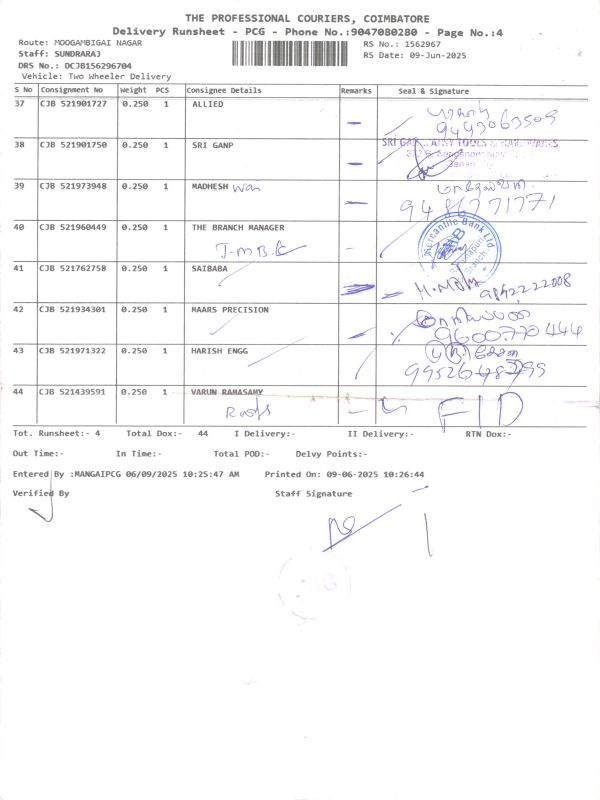 THE PROFESSIONAL COURIERS, COIMBATORE
Delivery Runsheet - PCG - Phone No.:9047080280 - Page No.:4
Route: MOOGAMBIGAI NAGAR RS No.: 1562967
Staff: SUNDRARAJ RS Date: 09-Jun-2025
DRS No.: DCJB156296704
Vehicle: Two Wheeler Delivery
S No Consignment No Weight PCS Consignee Details Remarks Seal & Signature
37 CJB 521901727 0.250 1 ALLIED
38 CJB 521901750 0.250 1 SRI GANP
39 CJB 521973948 0.250 1 MADHESH
40 CJB 521960449 0.250 1 THE BRANCH MANAGER
T-M B.
41 CJB 521762758 0.250 1 SAIBABA
9842222008
42 CJB 521934301 0.250 1 MAARS PRECISION
9600770444
43 CJB 521971322 0.250 1 HARISH ENGG
44 CJB 521439591 0.250 1 VARUN RAMASAMY
Tot. Runsheet:- 4 Total Dox:- 44 I Delivery:- II Delivery:- RTN Dox:-
Out Time:- In Time:- Total POD:- Delvy Points:-
Entered By :MANGAIPCG 06/09/2025 10:25:47 AM Printed On: 09-06-2025 10:26:44
Verified By Staff Signature